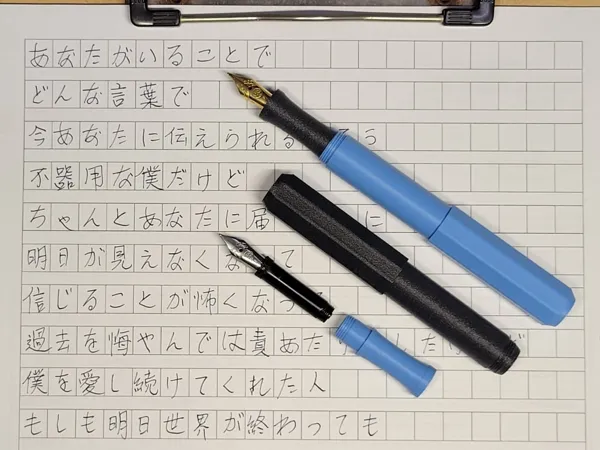 あなたがいることで
どんな言葉で
今あなたに伝えられる う
不器用な僕だけど
ちゃんとあなたに届 に
明日が見えなくな て
信じることが怖くなって
過去を悔やんでは責めた した ど
僕を愛し続けてくれた人
もしも明日世界が終わっても